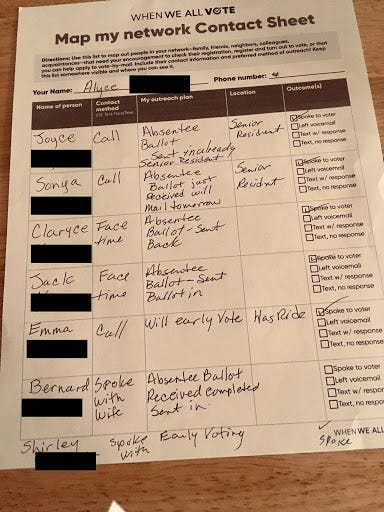 WHEN WE ALL VOTE
Map my network Contact Sheet
Directions: Use this list to map out people in your network—family, friends, neighbors, colleagues,
acquaintances—that need your encouragement to check their registration, register and turn out to vote, or that
you can help apply to vote-by-mail. Include their contact information and preferred method of outreach! Keep
this list somewhere visible and where you can see it.
Your Name: Alyce
Phone number:
Name of person
Contact method
My outreach plan
Location
Outcome(s)
Joyce
Call
Absentee
Ballot
Sent in already
Senior Resident
Senior
Resident
Spoke to voter
Left voicemail
Text w/ response
Text, no response
Sonya
Call
Absentee
Ballot just
received will
mail tomorrow
Senior
Resident
Spoke to voter
Left voicemail
Text w/ response
Text, no response
Claryce
Face
time
Absentee
Ballot-Sent
Back
Spoke to voter
Left voicemail
Text w/ response
Text, no response
Jack
Face
time
Absentee
Ballot-Sent
Ballot in
Spoke to voter
Left voicemail
Text w/ response
Text, no response
Emma
Call
Will early Vote
Has Ride
Spoke to voter
Left voicemail
Text w/ response
Text, no response
Bernard
Spoke
with
Wife
Absentee Ballot
Received completed
Sent in
Spoke to voter
Left voicemail
Text w/ response
Text, no response
Shirley
Spoke
with
Early Voting
Spoke
WHEN WE ALL